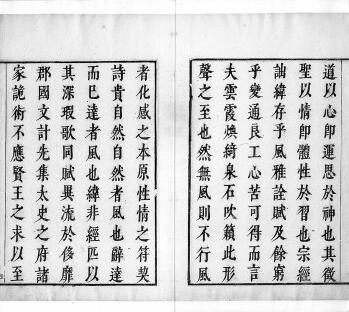 道以心卽運恩於神也其徵
聖以情卽體性於習也宗經
詘緯存乎風雅詮賦及餘窮
乎變通良工心苦可得而言
夫雲霞煥綺泉石吹籟此形
聲之至也然無風則不行風
者化感之本原性情之符契
詩貴自然自然者風也辭達
而已達者風也緯非經匹以
其深瑕歌同賦異流於侈靡
郡國文計先集太史之府諸
家詭術不應賢王之求以至